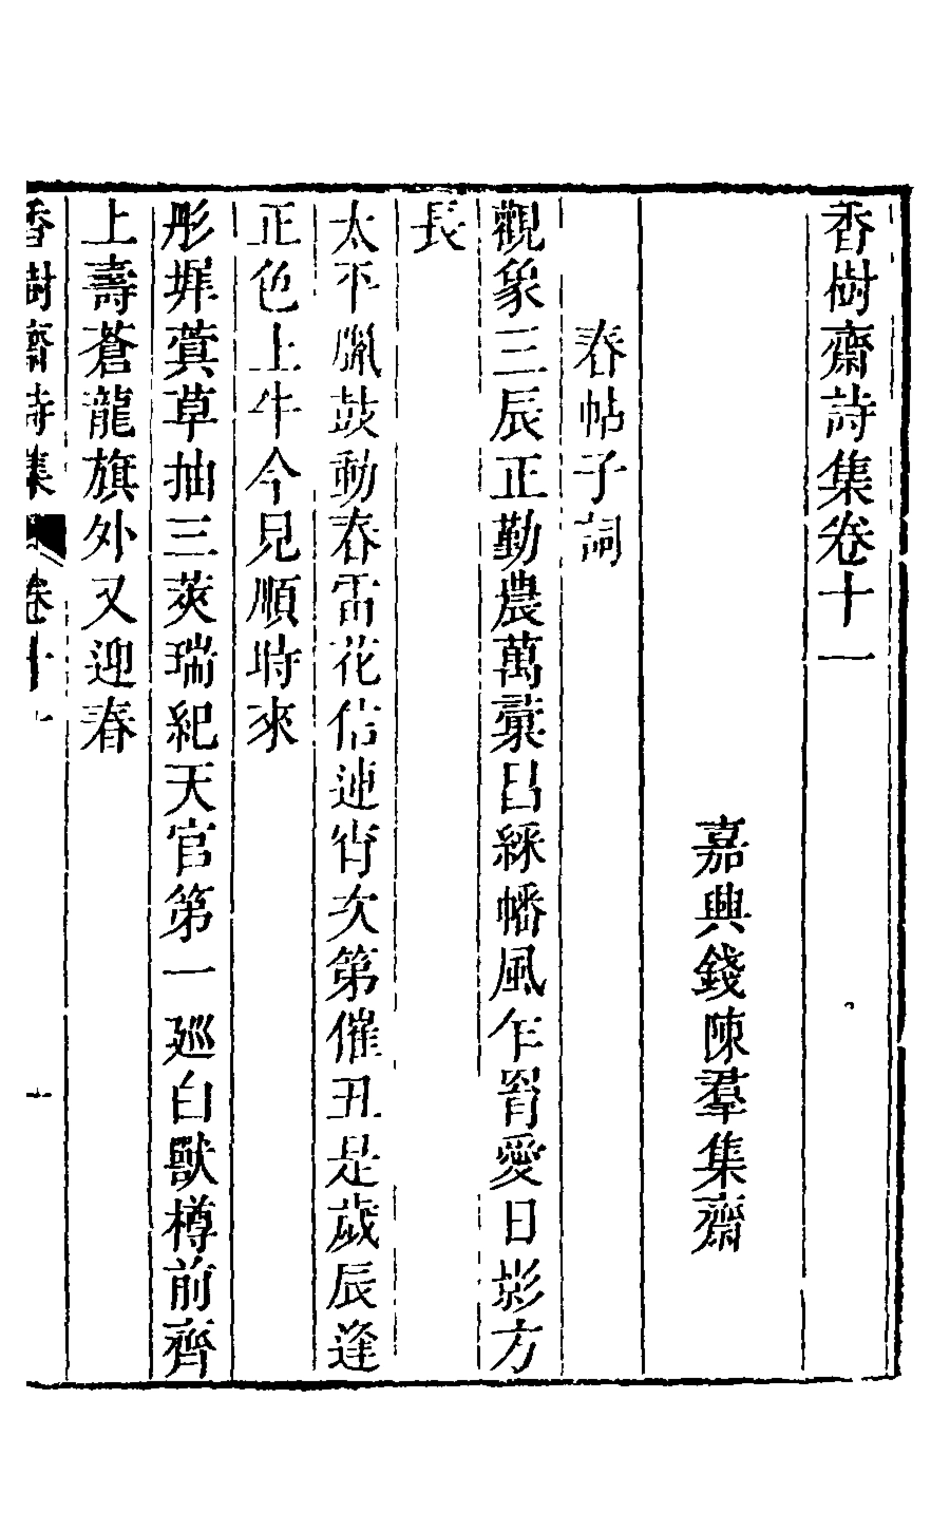 香樹齋詩集卷十一
嘉興錢陳羣集齋
春帖子詞
觀象三辰正勤農萬彙昌綵幡風乍罥愛日影方
長
太平臘鼓動春雷花信連宵次第催丑是歲辰逢
正色土牛今見順時來
彤墀蓂草抽三莢瑞紀天官第一廵白獸樽前齊
上壽蒼龍旗外又迎春
香樹齋詩集 卷十一 一